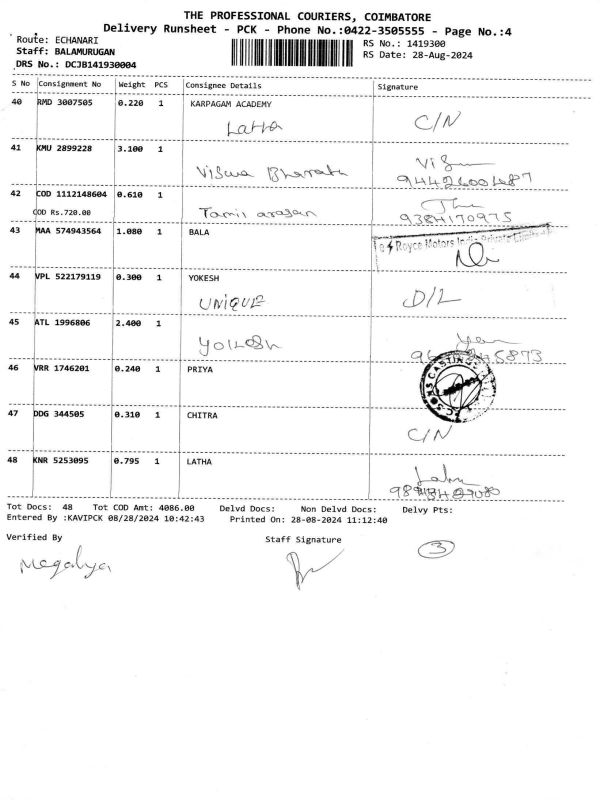 THE PROFESSIONAL COURIERS, COIMBATORE
Delivery Runsheet - PCK - Phone No.:0422-3505555 - Page No.:4
Route: ECHANARI
RS No.: 1419300
Staff: BALAMURUGAN
RS Date: 28-Aug-2024
DRS No.: DCJB141930004
S No Consignment No Weight PCS Consignee Details Signature
40 RMD 3007505 0.220 1 KARPAGAM ACADEMY
Latha C/N
41 KMU 2899228 3.100 1
Viswa Bharath
9442600487
42 COD 1112148604 0.610 1
COD Rs.720.00 Tamil arasan 9384170975
43 MAA 574943564 1.080 1 BALA
Royce Motors India Private Limited
44 VPL 522179119 0.300 1 YOKESH
UNIQUE D/L
45 ATL 1996806 2.400 1
Yokesh
46 VRR 1746201 0.240 1 PRIYA
CASTINGS
47 DDG 344505 0.310 1 CHITRA
C/N
48 KNR 5253095 0.795 1 LATHA
Latha
Tot Docs: 48 Tot COD Amt: 4086.00 Delvd Docs: Non Delvd Docs: Delvy Pts:
Entered By :KAVIPCK 08/28/2024 10:42:43 Printed On: 28-08-2024 11:12:40
Verified By Staff Signature 3
Megalya